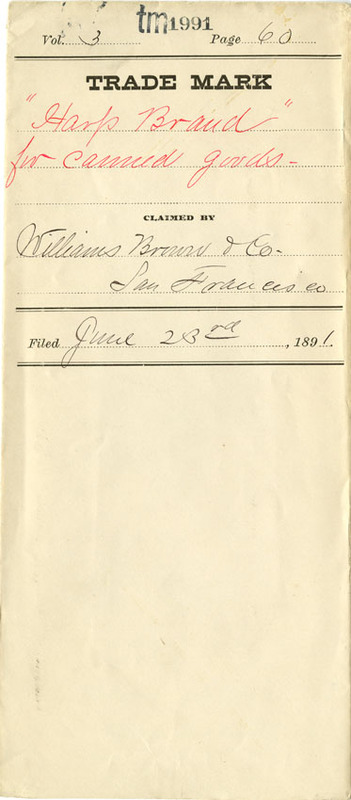 tm1991
Vol. 3 Page 60
TRADE MARK
"Harp Brand"
for canned goods-
CLAIMED BY
Williams Brown & Co-
San Francisco
Filed June 23rd, 1891.